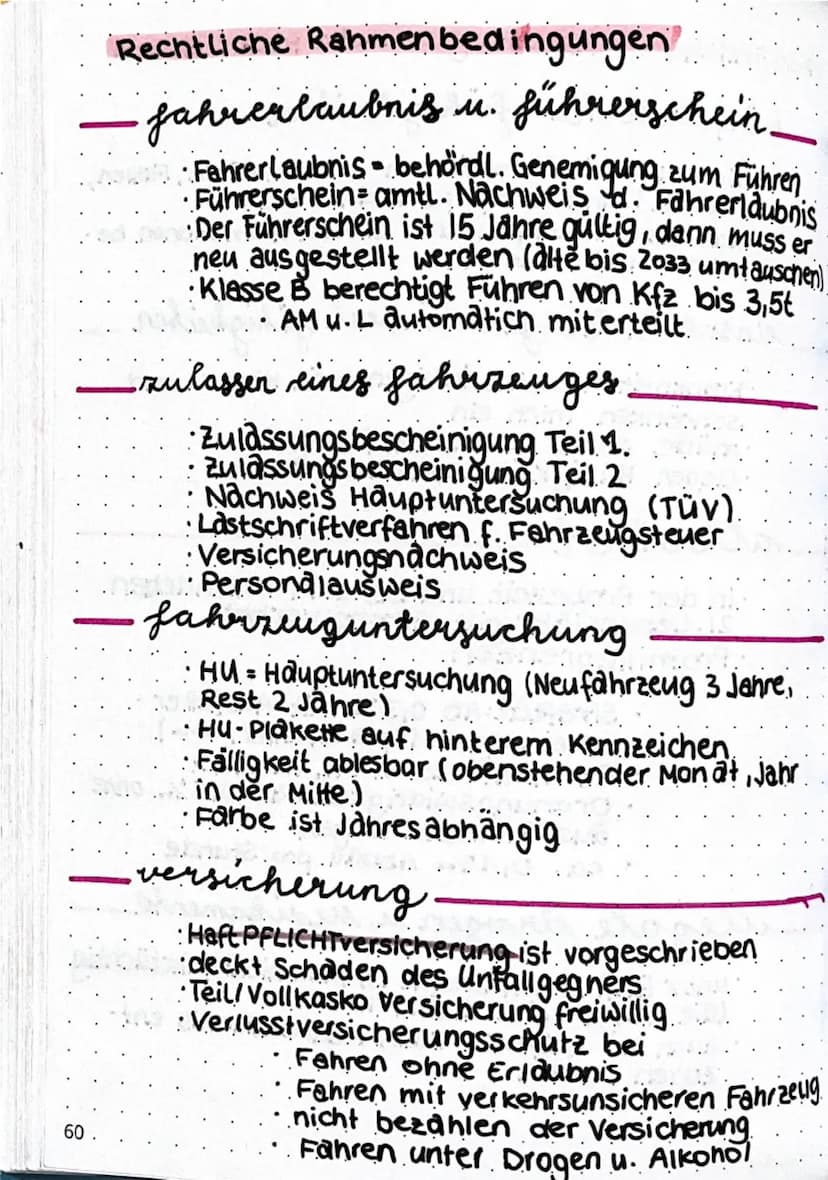 Rechtliche Rahmenbedingungen
fahrerlaubnis u. führerschein
· Fahrerlaubnis = behördl. Genemigung zum Führen
· Führerschein = amtl. Nachweis d. Fahrerlaubnis
· Der Führerschein ist 15 Jahre gültig, dann muss er
neu ausgestellt werden (alte bis 2033 umtauschen)
· Klasse B berechtigt Führen von Kfz bis 3,5t
· AM u. L automatich miterteilt
zulassen eines fahrzeuges
· Zulassungsbescheinigung Teil 1.
· Zulassungsbescheinigung Teil 2
· Nachweis Hauptuntersuchung (TÜV)
· Lastschriftverfahren f. Fahrzeugsteuer
· Versicherungsnachweis
· Personalausweis
fahrzeuguntersuchung
· HU = Hauptuntersuchung (Neufahrzeug 3 Jahre,
Rest 2 Jahre)
· HU-Plakette auf hinterem Kennzeichen
· Fälligkeit ablesbar (obenstehender Monat, Jahr
in der Mitte)
· Farbe ist Jahresabhängig
versicherung
· HaftPFLICHTversicherung ist vorgeschrieben
· deckt Schaden des Unfallgegners
· Teil/Vollkasko Versicherung freiwillig
· Verlusstversicherungsschutz bei
· Fahren ohne Erlaubnis
· Fahren mit verkehrsunsicheren Fahrzeug
· nicht bezahlen der Versicherung
· Fahren unter Drogen u. Alkohol
60